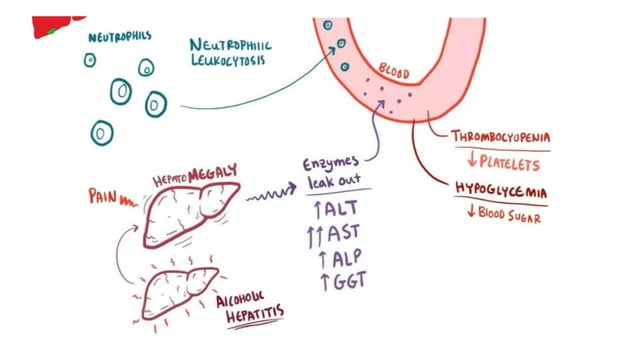 NEUTROPHILS
NEUTROPHILIC
LEUKOCYTOSIS
BLOOD
THROMBOCYOPENIA
↓ PLATELETS
HYPOGLYCEMIA
↓ BLOOD SUGAR
PAIN
HEPATOMEGALY
Enzymes
leak out
↑ALT
↑↑AST
↑ALP
↑GGT
ALCOHOLIC
HEPATITIS